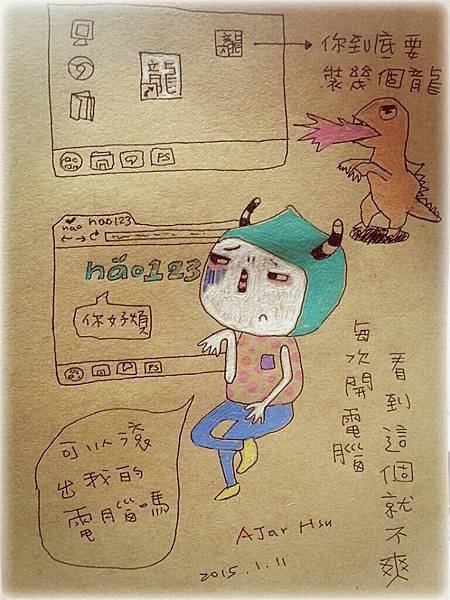 龍
龍
你到底要
裝幾個龍
PS
hao hao123
hao123
你好煩
PS
每次開電腦
看到這個就不爽
可以滾
出我的
電腦嗎
AJar Hsu
2015.1.11